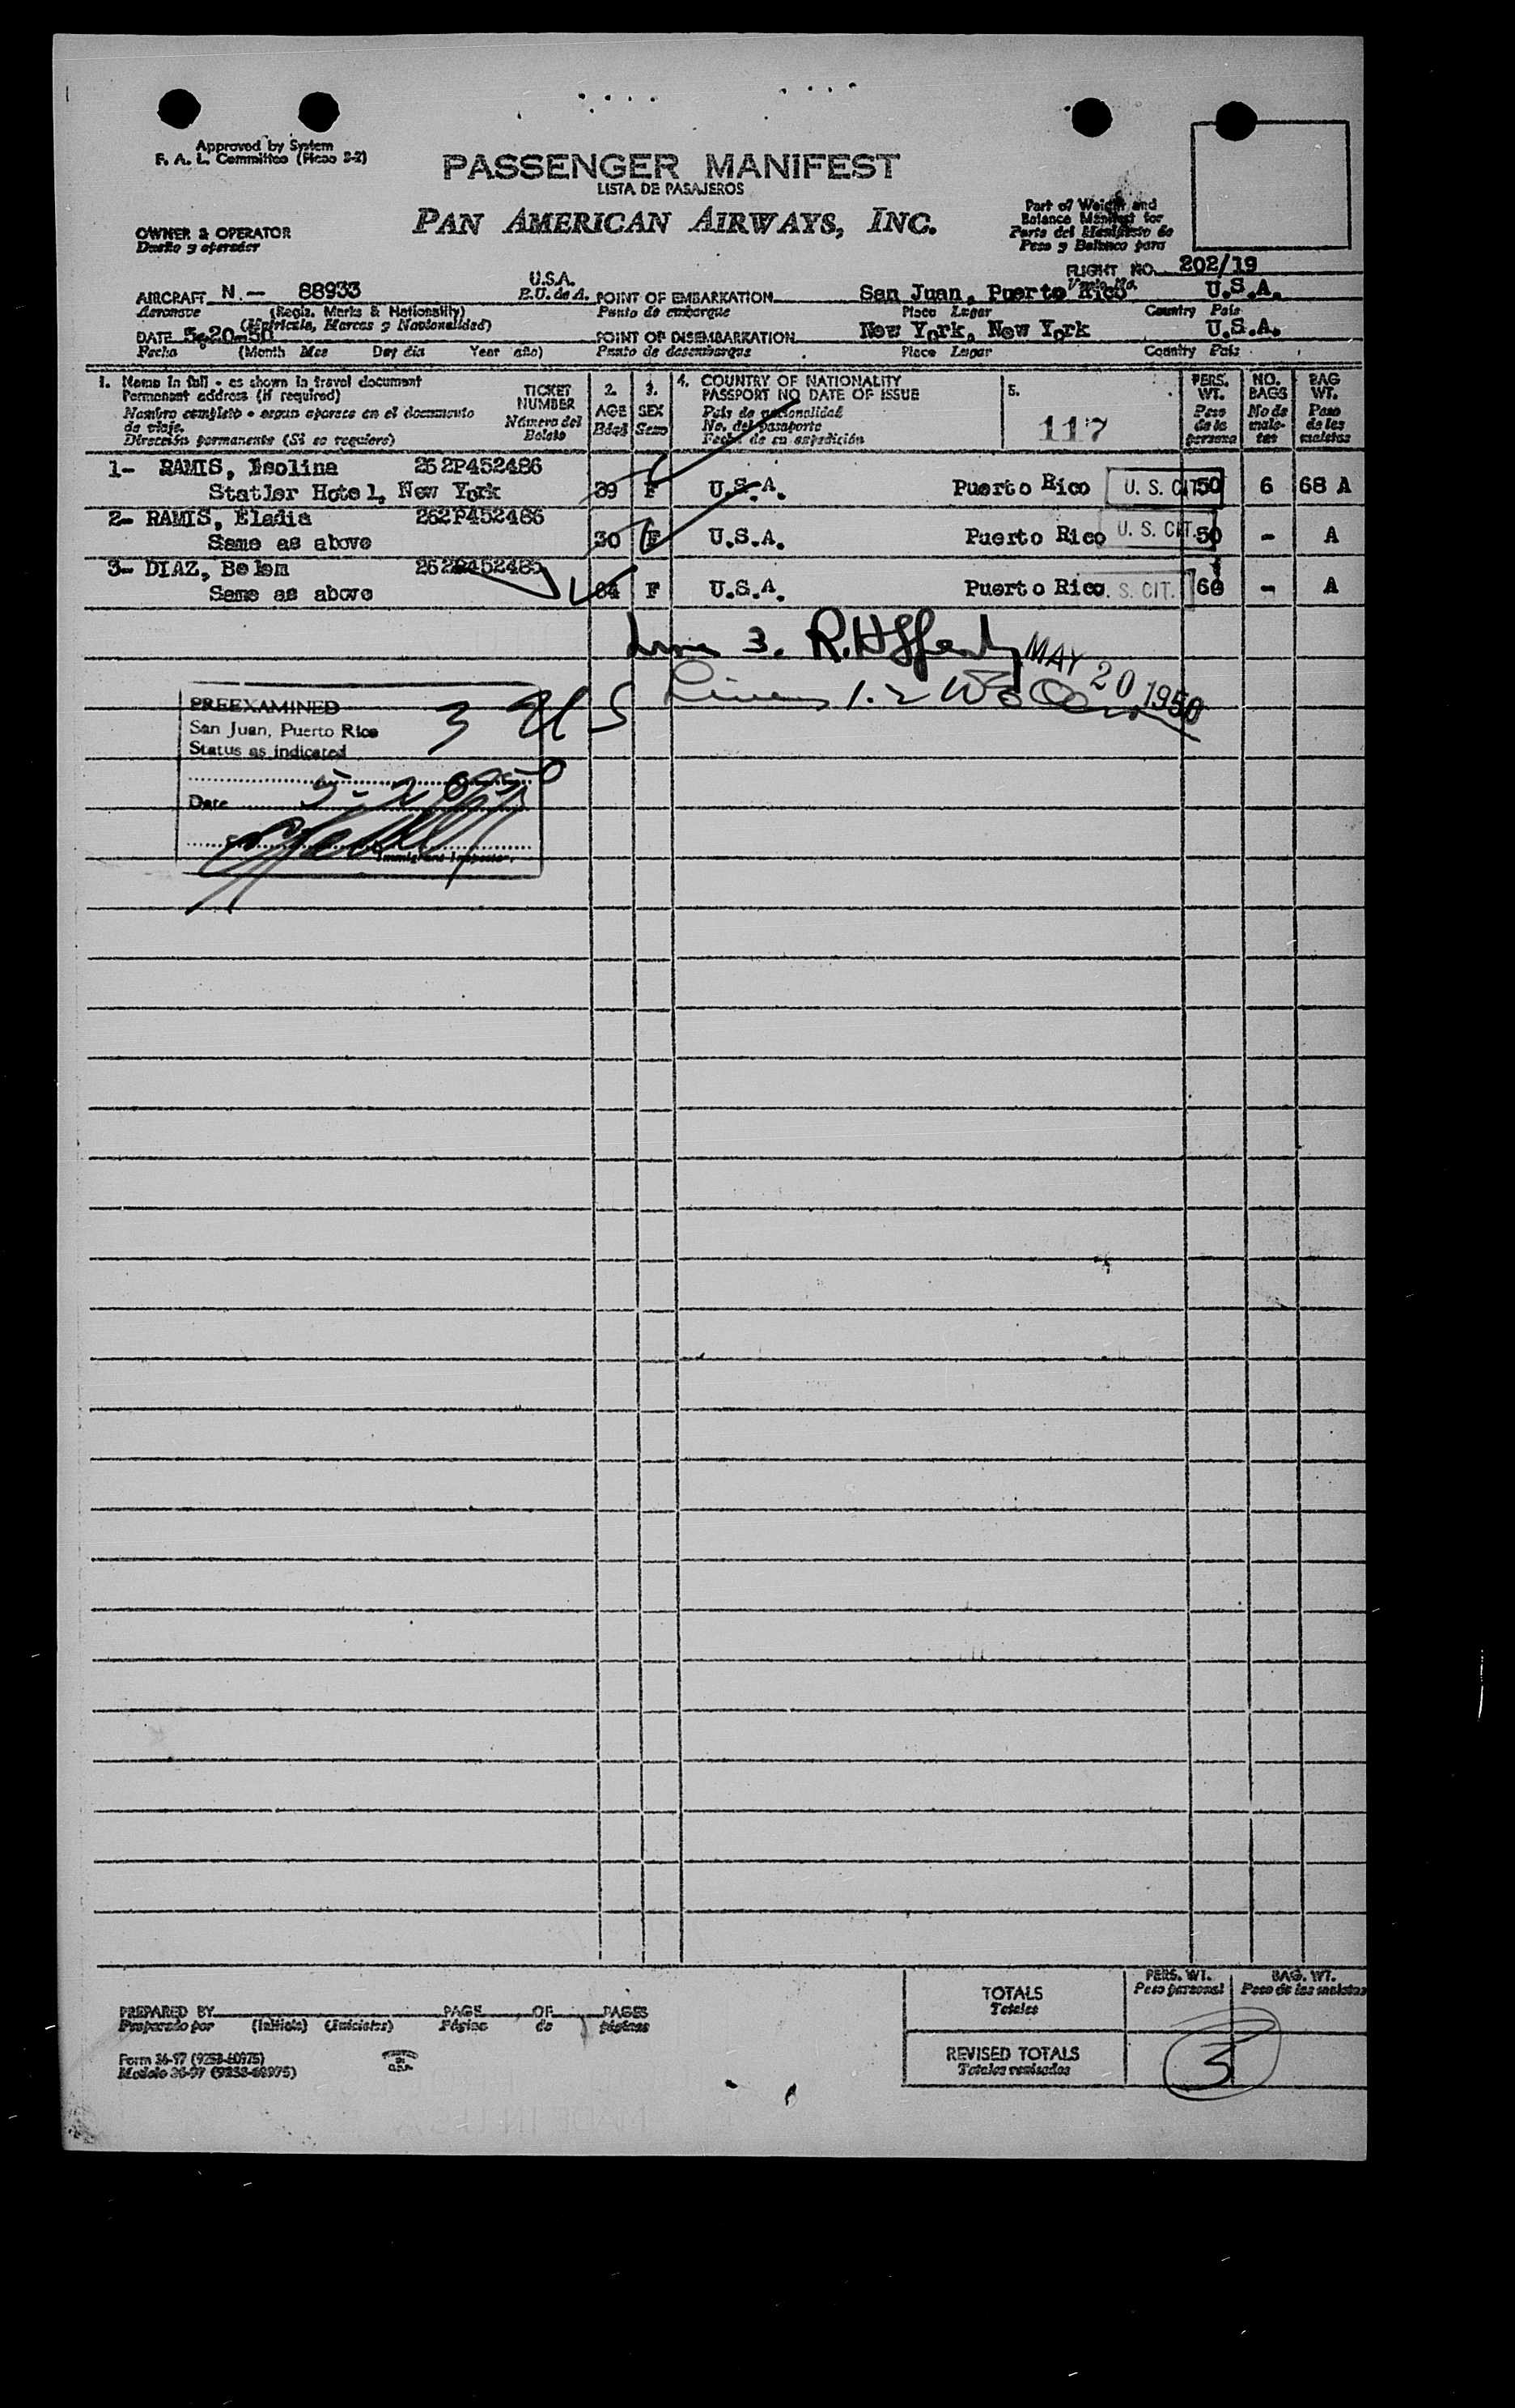 Approved by System
F. A. L. Committee (Picao 2-2)
PASSENGER MANIFEST
LISTA DE PASAJEROS
PAN AMERICAN AIRWAYS, INC.
OWNER & OPERATOR
Dueño y operador
Part of Weight and
Balance Manifest for
Parte del Manifiesto de
Peso y Balance para
FLIGHT NO. 202/19
Vuelo No.
AIRCRAFT N.- 88933 U.S.A.
Aeronave (Regis. Marks & Nationality) E.U. de A.
(Matricula, Marcas y Nacionalidad)
POINT OF EMBARKATION San Juan, Puerto Rico U.S.A.
Punto de embarque Place Lugar Country País
DATE 5-20-50
Fecha (Month Mes Day día Year año)
POINT OF DISEMBARKATION New York, New York U.S.A.
Punto de desembarque Place Lugar Country País
1. Name in full - as shown in travel document
Permanent address (if required)
Nombre completo - segun aparece en el documento
de viaje.
Dirección permanente (Si se requiere)
TICKET
NUMBER
Número del
Boleto
2.
AGE
Edad
3.
SEX
Sexo
4. COUNTRY OF NATIONALITY
PASSPORT NO DATE OF ISSUE
País de nacionalidad
No. del pasaporte
Fecha de su expedición
5.
117
PERS.
WT.
Peso
de la
persona
NO.
BAGS
No de
male-
tas
BAG
WT.
Peso
de las
maletas
1- RAMIS, Isolina 262P452486
Statler Hotel, New York 39 F U.S.A. Puerto Rico U. S. CIT. 50 6 68 A
2- RAMIS, Eladia 262P452486
Same as above 30 F U.S.A. Puerto Rico U. S. CIT. 50 - A
3- DIAZ, Belem 262P452485
Same as above 64 F U.S.A. Puerto Rico S. CIT. 60 - A
Line 3. R.H
MAY 20 1950
Lines 1.2
PREEXAMINED
San Juan, Puerto Rico
Status as indicated
3 US
Date 5-20-50
Immigrant Inspector.
PREPARED BY PAGE OF PAGES
Preparado por (Initials) (Iniciales) Página de páginas
Form 36-97 (9253-60975)
Modelo 36-97 (9253-60975)
TOTALS
Totales
PERS. WT.
Peso personal
BAG. WT.
Peso de las maletas
REVISED TOTALS
Totales revisados
3